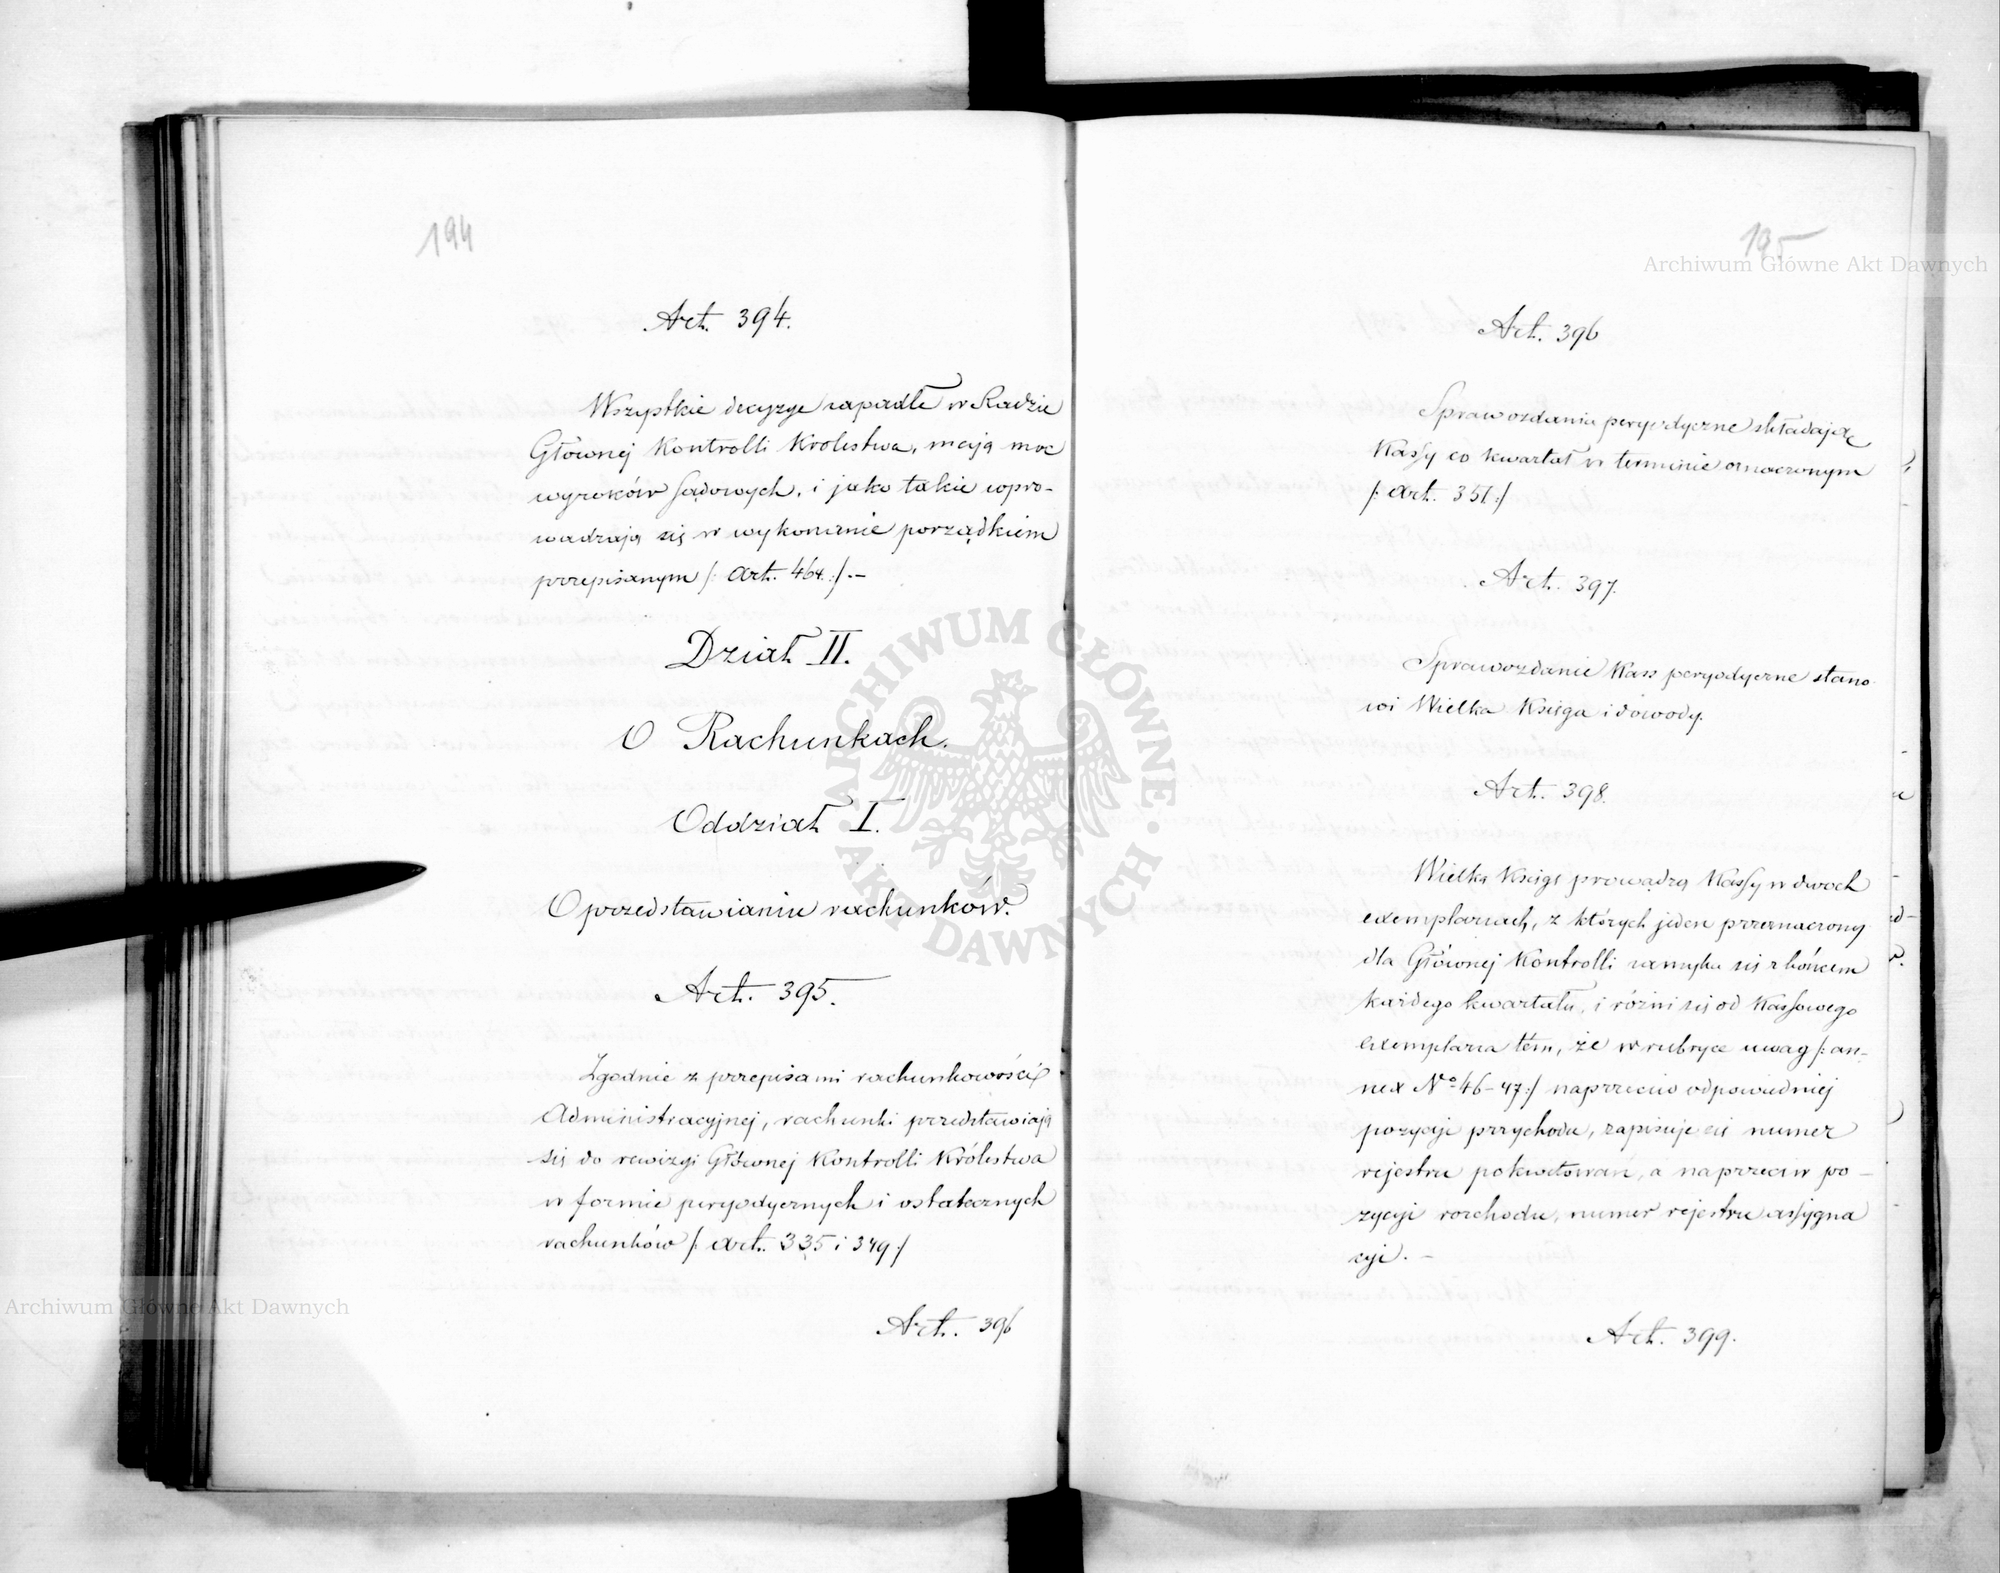 194
Art. 394.
Wszystkie decyzye zapadłe w Radzie
Głównej Kontrolli Krolestwa, mają moc
wyroków sądowych, i jako takie wpro-
wadzają się w wykonanie porządkiem
przepisanym /: Art. 464. :/. –
Dział II.
O Rachunkach.
Oddział I.
O przedstawianiu rachunków.
Art. 395.
Zgodnie z przepisami rachunkowości
Administracyjnej, rachunki przedstawiają
się do rewizyi Głównej Kontrolli Królestwa
w formie peryodycznych i ostatecznych
rachunków /: Art. 335 i 349 :/
Art. 396
195
Art. 396
Sprawozdania peryodyczne składają
Kassy co kwartał w terminie oznaczonym
/: Art. 351 :/
Art. 397.
Sprawozdanie Kass peryodyczne stano
wi Wielka Księga i dowody.
Art. 398.
Wielką Księgę prowadzą Kassy w dwoch
exemplarzach, z których jeden przeznaczony
dla Głównej Kontrolli zamyka się z końcem
każdego kwartału, i różni się od Kassowego
exemplarza tém, że w rubryce uwag /: an-
nex No 46-47 :/ naprzeciw odpowiedniej
pozycyi przychodu, zapisuje się numer
rejestru pokwitowań, a naprzeciw po-
zycyi rozchodu, numer rejestru assygna
cyi. –
Art. 399.
Archiwum Główne Akt Dawnych
Archiwum Główne Akt Dawnych
ARCHIWUM GŁÓWNE · AKT DAWNYCH ·